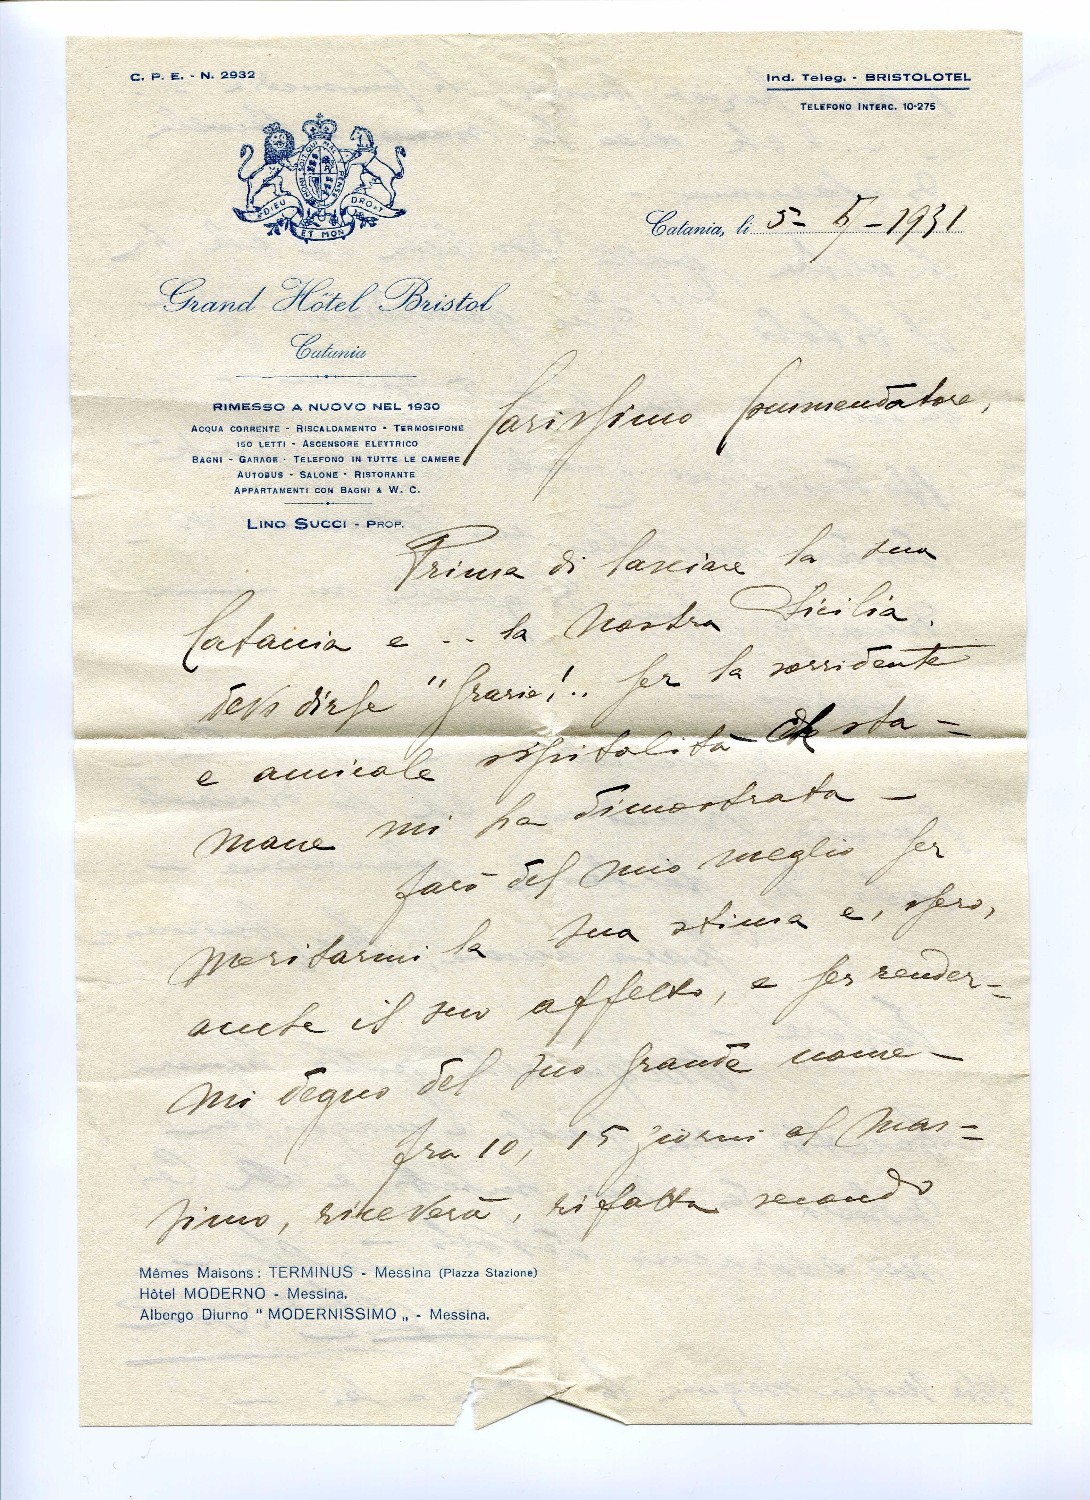 C. P. E. - N. 2932
Ind. Teleg. - BRISTOLOTEL
TELEFONO INTERC. 10-275
HONI SOIT QUI MAL Y PENSE
DIEU ET MON DROIT
Catania, li 5 - 5 - 1931
Grand Hôtel Bristol
Catania
RIMESSO A NUOVO NEL 1930
ACQUA CORRENTE - RISCALDAMENTO - TERMOSIFONE
150 LETTI - ASCENSORE ELEYTRICO
BAGNI - GARAGE - TELEFONO IN TUTTE LE CAMERE
AUTOBUS - SALONE - RISTORANTE
APPARTAMENTI CON BAGNI & W. C.
LINO SUCCI - PROP.
Carissimo Commendatore,
Prima di lasciare la sua
Catania e .. la nostra Sicilia,
devo dirle "Grazie!.. per la sorridente
e amicale ospitalità che sta-
mane mi ha dimostrata -
farò del mio meglio per
meritarmi la sua stima e, spero,
anche il suo affetto, e per render-
mi degno del suo grande nome -
fra 10, 15 giorni al mas-
simo, riceverà, rifatta secondo
Mêmes Maisons: TERMINUS - Messina (Piazza Stazione)
Hôtel MODERNO - Messina.
Albergo Diurno " MODERNISSIMO „ - Messina.